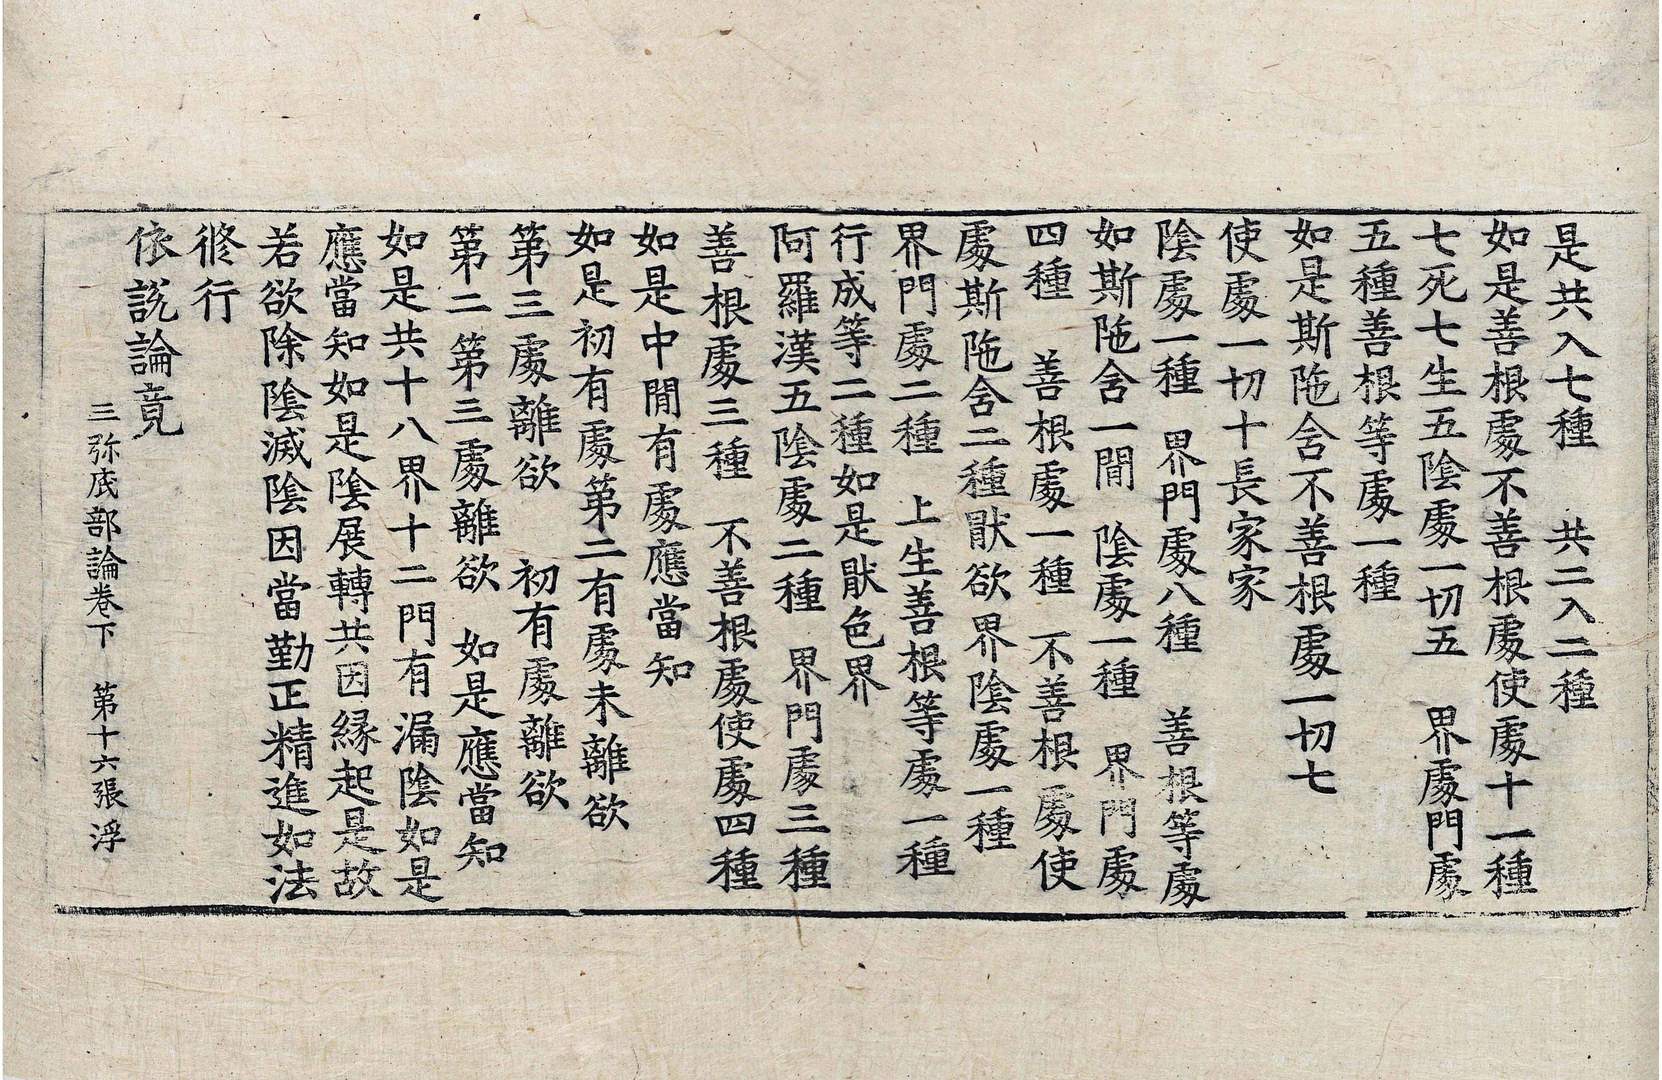 是共入七種　共二入二種
如是善根處不善根處使處十一種
七死七生五陰處一切五　界處門處
五種善根等處一種
如是斯陁含不善根處一切七
使處一切十長家家
陰處一種　界門處八種　善根等處
如斯陁含一間　陰處一種　界門處
四種　善根處一種　不善根處使
處斯陁含二種猒欲界陰處一種
界門處二種　上生善根等處一種
行成等二種如是猒色界
阿羅漢五陰處二種　界門處三種
善根處三種　不善根處使處四種
如是中間有處應當知
如是初有處第二有處未離欲
第三處離欲　初有處離欲
第二第三處離欲　如是應當知
如是共十八界十二門有漏陰如是
應當知如是陰展轉共因緣起是故
若欲除陰滅陰因當勤正精進如法
修行
依說論竟
三弥底部論卷下　第十六張　浮